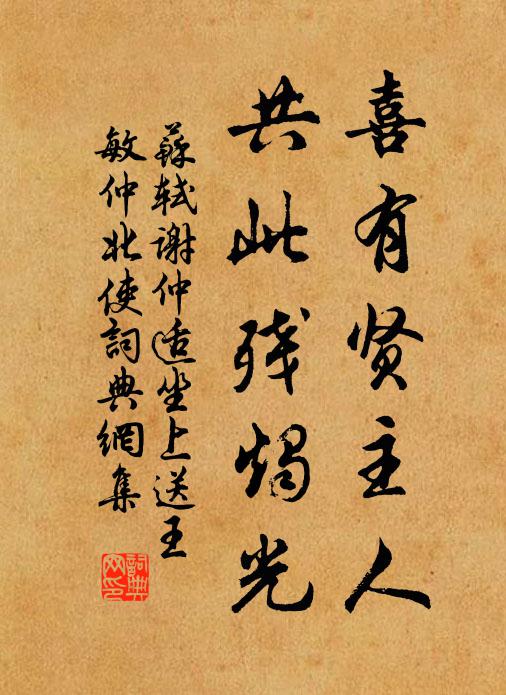 喜有贤主人
共此残烛光
蘇軾謝仲适坐上送王
敏仲北使詞典網集
詞典网印